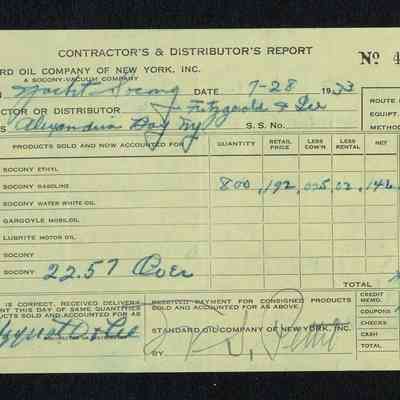 CONTRACTOR'S & DISTRIBUTOR'S REPORT
ARD OIL COMPANY OF NEW YORK, INC. Nº 4
A SOCONY-VACUUM COMPANY
Yacht Socony DATE 7-28 1933
ROUTE
CTOR OR DISTRIBUTOR J. Fitzgerald & Lee
EQUIPT.
S Alexandria Bay Ny S.S. No.
METHOD
PRODUCTS SOLD AND NOW ACCOUNTED FOR QUANTITY RETAIL PRICE LESS COM'N LESS RENTAL NET
SOCONY ETHYL
SOCONY GASOLINE 800 .192 .025 .02 .142
SOCONY WATER WHITE OIL
GARGOYLE MOBILOIL
LUBRITE MOTOR OIL
SOCONY
SOCONY 22.57 Over
TOTAL
IS CORRECT. RECEIVED DELIVERY
ENT THIS DAY OF SAME QUANTITIES
ODUCTS SOLD AND ACCOUNTED FOR AS
RECEIVED PAYMENT FOR CONSIGNED PRODUCTS
AS ACCOUNTED FOR AS ABOVE.
STANDARD OIL COMPANY OF NEW YORK, INC.
BY
CREDIT MEMO.
COUPONS
CHECKS
CASH
TOTAL